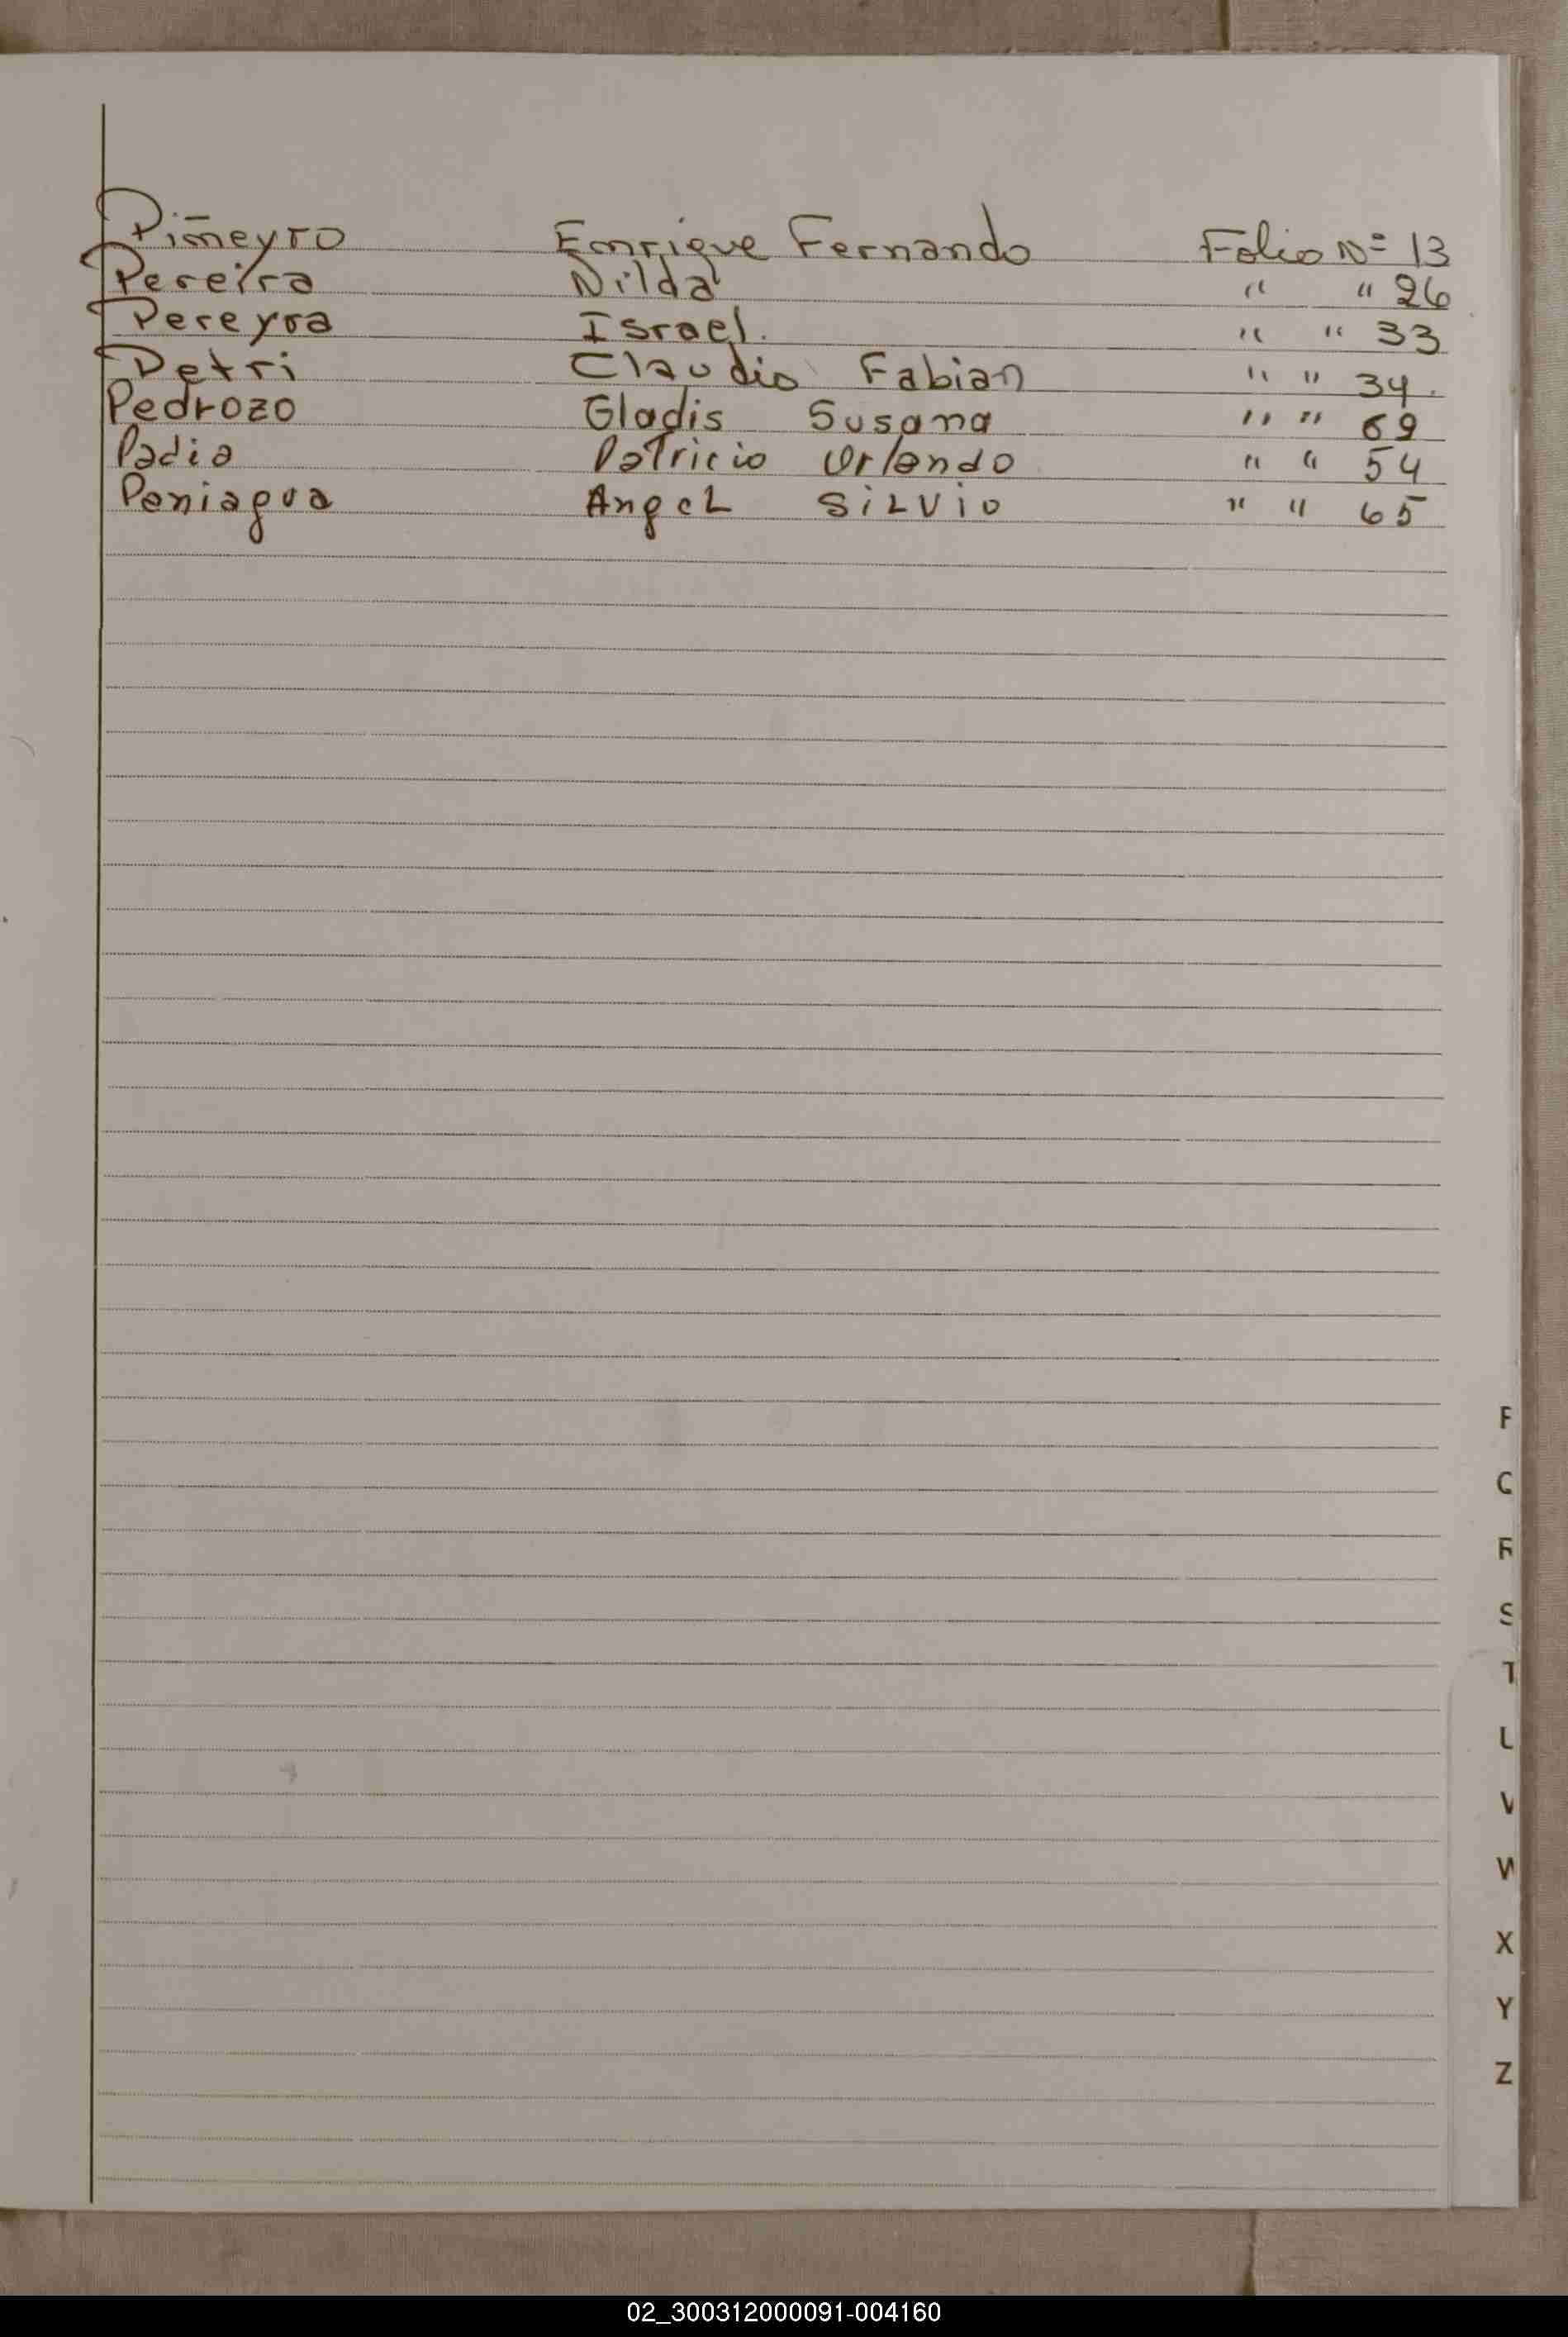 Piñeyro Enrique Fernando Folio Nº 13
Pereira Nilda " " 26
Pereyra Israel. " " 33
Petri Claudio Fabian " " 34.
Pedrozo Gladis Susana " " 69
Padia Patricio Orlando " " 54
Paniagua Angel Silvio " " 65
P
Q
R
S
T
U
V
W
X
Y
Z
02_300312000091-004160